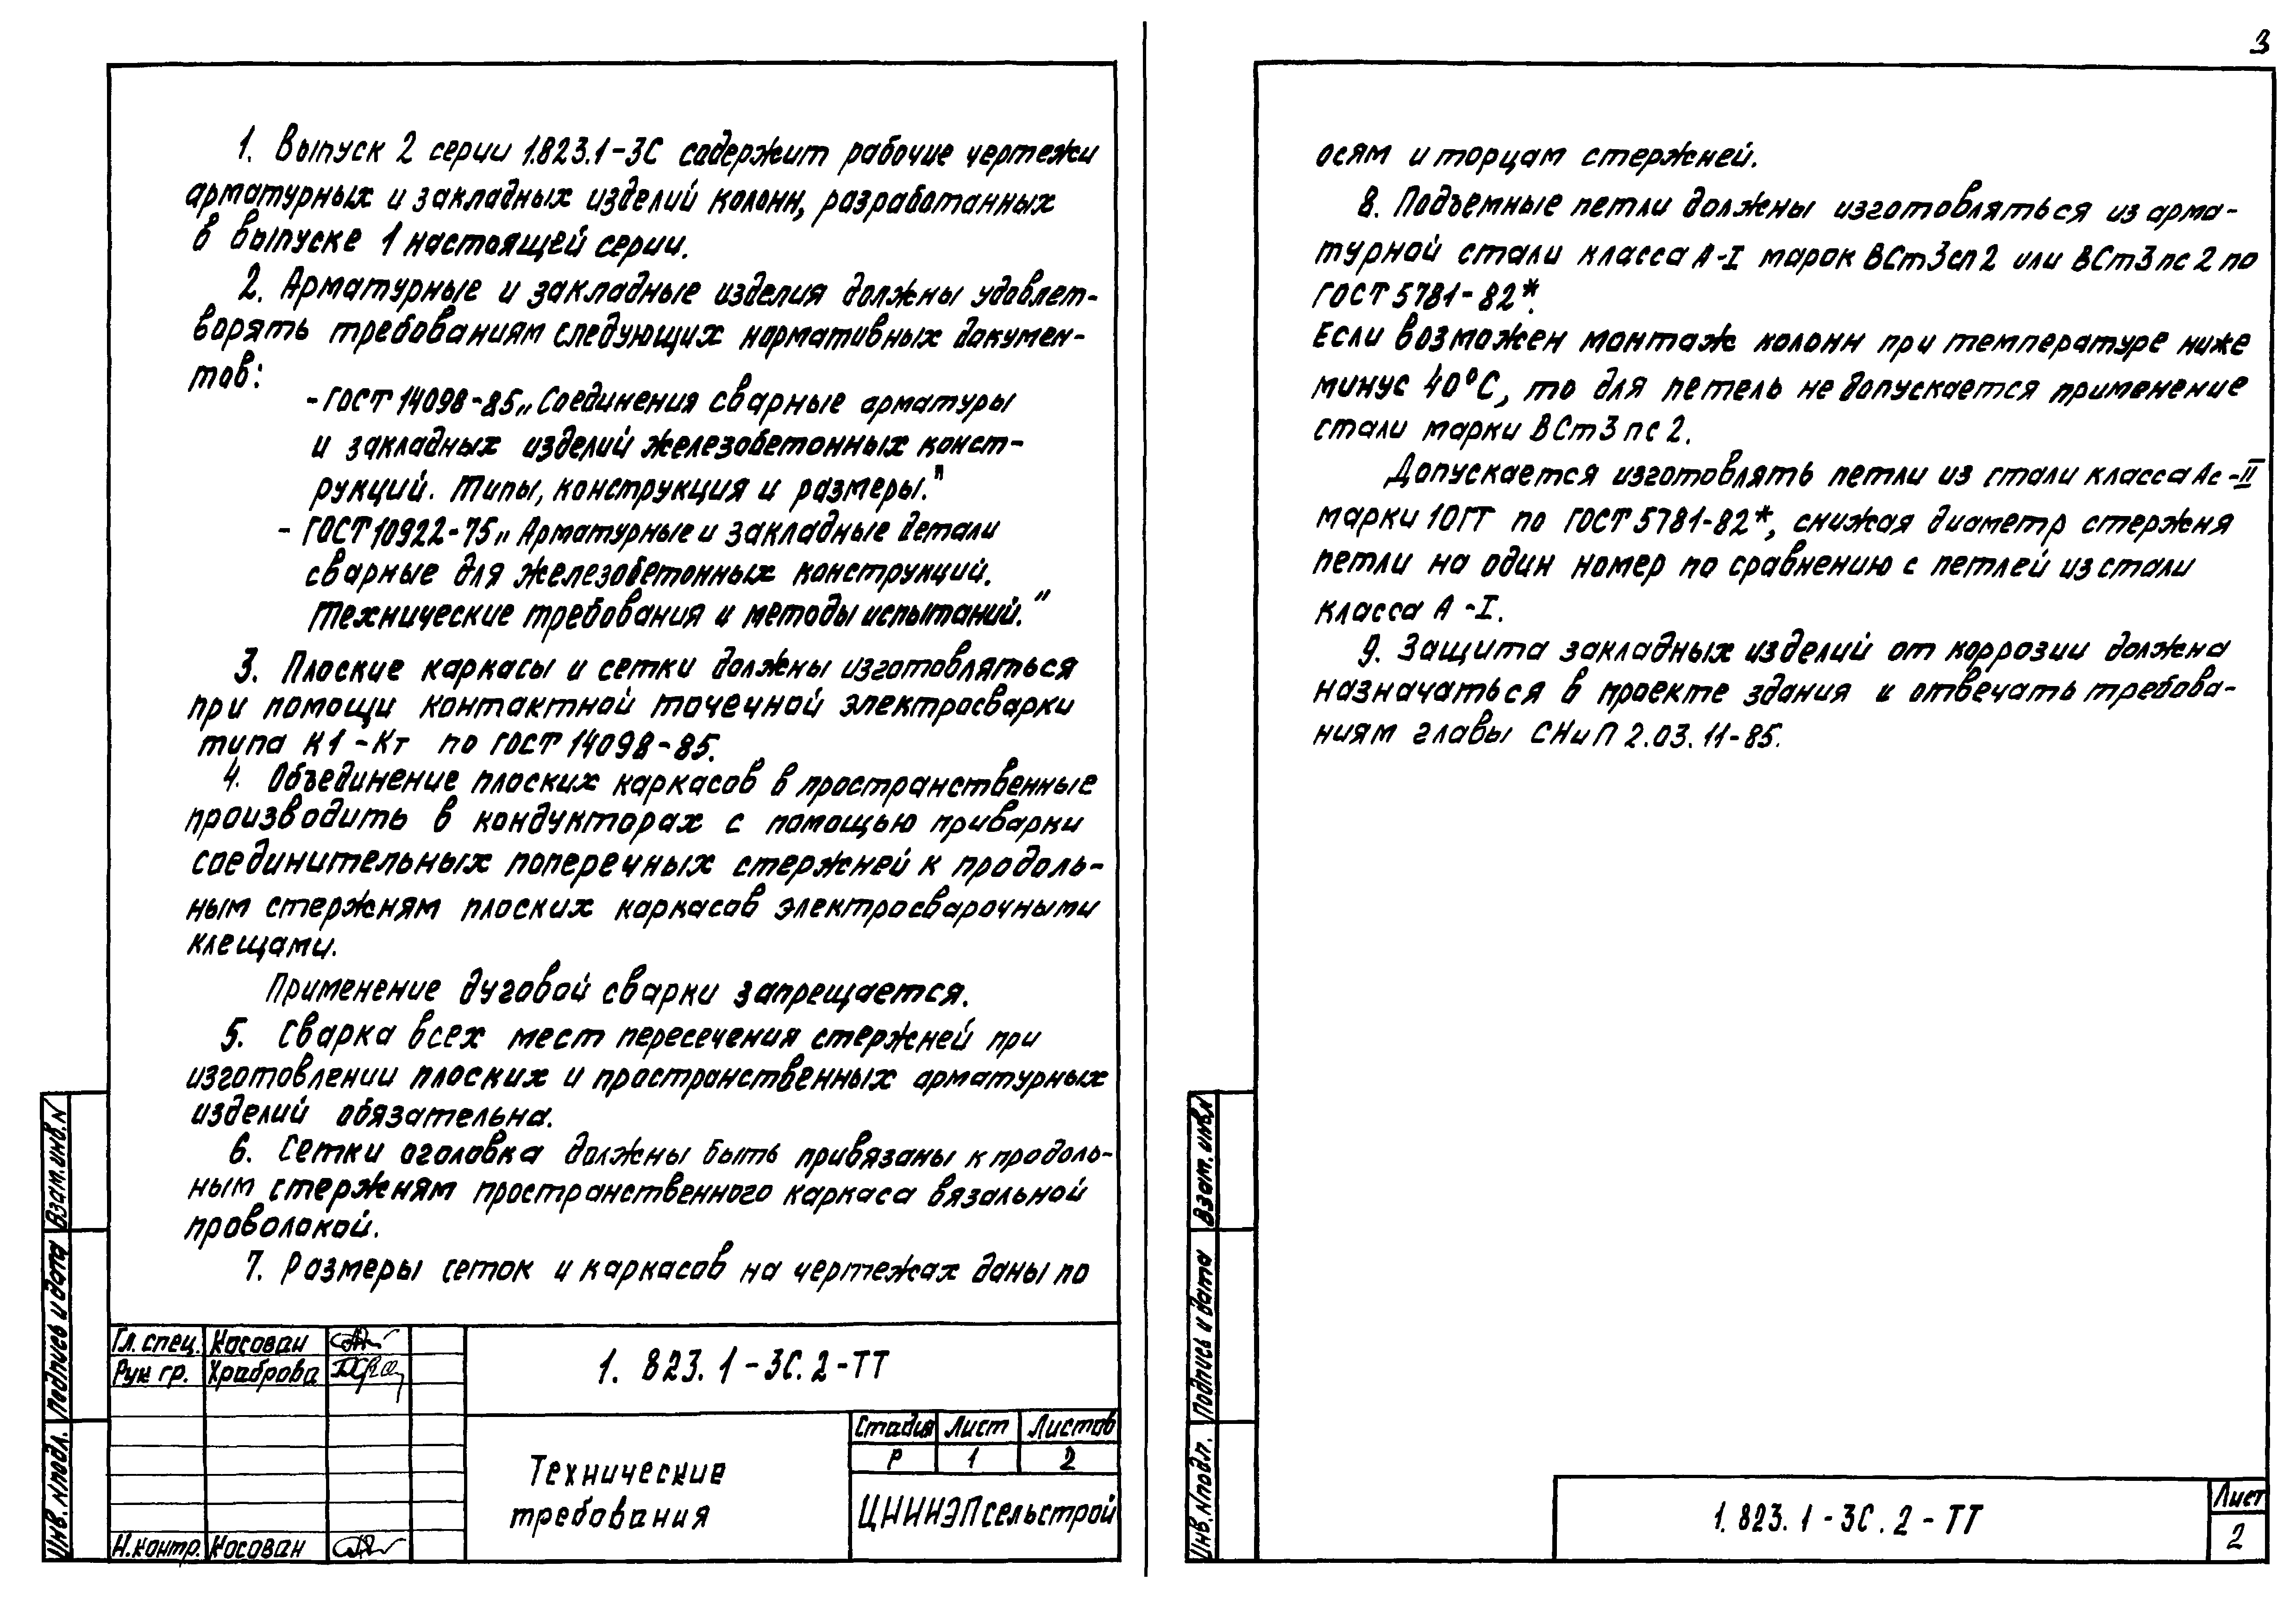 3
1. Выпуск 2 серии 1.823.1-3С содержит рабочие чертежи
арматурных и закладных изделий колонн, разработанных
в выпуске 1 настоящей серии.
2. Арматурные и закладные изделия должны удовлет-
ворять требованиям следующих нормативных докумен-
тов:
- ГОСТ 14098-85 „Соединения сварные арматуры
и закладных изделий железобетонных конст-
рукций. Типы, конструкция и размеры."
- ГОСТ 10922-75 „Арматурные и закладные детали
сварные для железобетонных конструкций.
Технические требования и методы испытаний."
3. Плоские каркасы и сетки должны изготовляться
при помощи контактной точечной электросварки
типа К1-Кт по ГОСТ 14098-85.
4. Объединение плоских каркасов в пространственные
производить в кондукторах с помощью приварки
соединительных поперечных стержней к продоль-
ным стержням плоских каркасов электросварочными
клещами.
Применение дуговой сварки запрещается.
5. Сварка всех мест пересечения стержней при
изготовлении плоских и пространственных арматурных
изделий обязательна.
6. Сетки оголовка должны быть привязаны к продоль-
ным стержням пространственного каркаса вязальной
проволокой.
7. Размеры сеток и каркасов на чертежах даны по
Гл. спец. Косован
Рук гр. Храброва
Н.контр. Косован
1.823.1-3С.2-ТТ
Технические
требования
Стадия Лист Листов
Р 1 2
ЦНИИЭПсельстрой
Взам. инв. N
Подпись и дата
Инв. N подл.
осям и торцам стержней.
8. Подъемные петли должны изготовляться из арма-
турной стали класса А-I марок ВСт3сп2 или ВСт3пс2 по
ГОСТ 5781-82*.
Если возможен монтаж колонн при температуре ниже
минус 40°С, то для петель не допускается применение
стали марки ВСт3пс2.
Допускается изготовлять петли из стали класса Ас-II
марки 10ГТ по ГОСТ 5781-82*, снижая диаметр стержня
петли на один номер по сравнению с петлей из стали
класса А-I.
9. Защита закладных изделий от коррозии должна
назначаться в проекте здания и отвечать требова-
ниям главы СНиП 2.03.11-85.
Взам. инв. N
Подпись и дата
Инв. N подл.
1.823.1-3С.2-ТТ
Лист
2